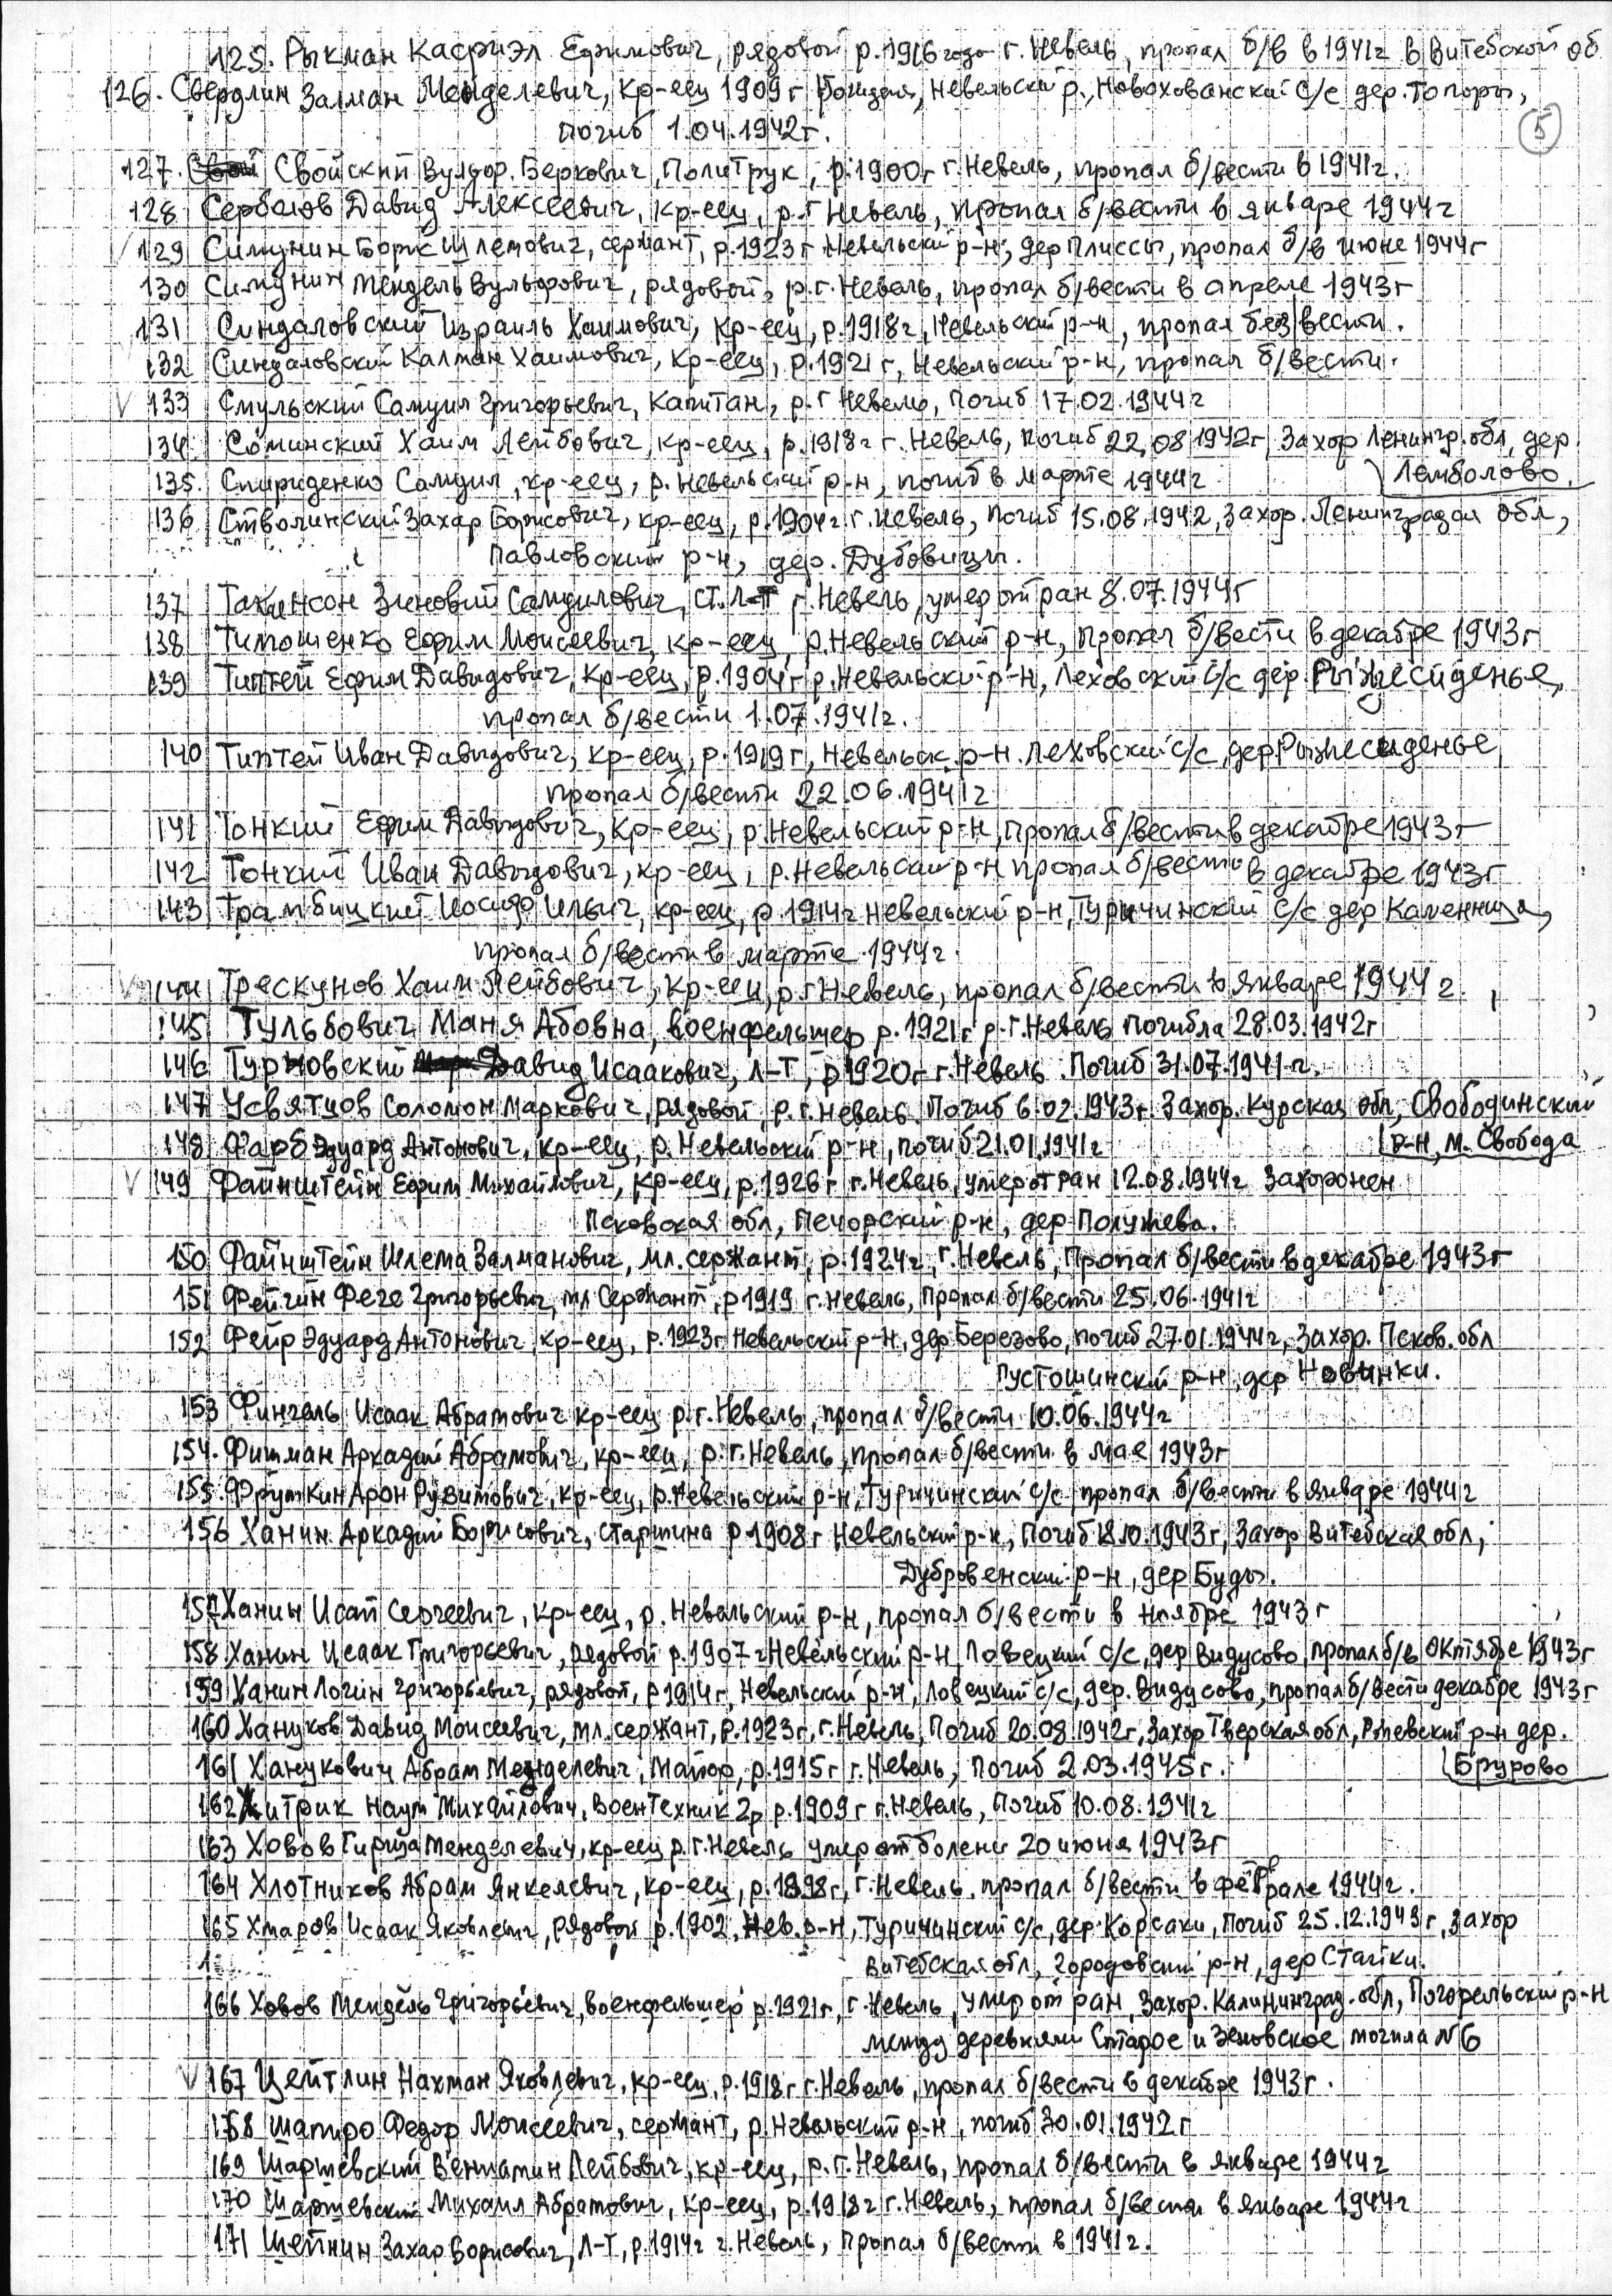 125. Рыкман Касриэл Ефимович, рядовой р.1916 года г. Невель, пропал б/в в 1941г в Витебской об
126. Свердлин Залман Менделевич, Кр-еец 1909г рождения, Невельский р., Новохованский с/с дер. Топоры,
погиб 1.04.1942г.
5
127. Свойский Вулдор. Беркович, Политрук, р.1900г г. Невель, пропал б/вести в 1941г.
128 Сербаюв Давид Алексеевич, кр-еец, р.г Невель, пропал б/вести в январе 1944г
√ 129 Симунин Борис Шлемович, сержант, р.1923г Невельский р-н, дер Плиссы, пропал б/в июне 1944г
130 Симунин Мендель Вульфович, рядовой, р.г. Невель, пропал б/вести в апреле 1943г
131 Синдаловский Израиль Хаимович, кр-еец, р.1918г, Невельский р-н, пропал без вести.
132 Синдаловский Калман Хаимович, кр-еец, р.1921г, Невельский р-н, пропал б/вести.
√ 133 Смульский Самуил Григорьевич, Капитан, р.г Невель, Погиб 17.02.1944г
134 Соминский Хаим Лейбович, кр-еец, р.1918г г. Невель, погиб 22.08 1942г, Захор Ленингр. обл, дер.
Лемболово.
135. Спириденко Самуил, кр-еец, р. Невельский р-н, погиб в марте 1944г
136 Стволинский Захар Борисович, кр-еец, р.1904г г. Невель, Погиб 15.08.1942, Захор. Ленинградая обл,
Павловский р-н, дер. Дубовицы.
137 Такинсон Зиновий Самуилович, ст. л-т г. Невель, умер от ран 8.07.1944г
138 Тимошенко Ефим Моисеевич, кр-еец, р. Невельский р-н, пропал б/вести в декабре 1943г
139 Типтей Ефим Давыдович, Кр-еец, р.1904г р. Невельский р-н, Леховский с/с дер. Рыжесиденье,
пропал б/вести 1.07.1941г.
140 Типтей Иван Давыдович, кр-еец, р.1919г, Невельск. р-н. Леховский с/с, дер Рыжесиденье,
пропал б/вести 22.06.1941г
141 Тонкий Ефим Давыдович, Кр-еец, р. Невельский р-н, Пропал б/вести в декабре 1943г
142 Тонкий Иван Давыдович, кр-еец, р. Невельский р-н пропал б/вести в декабре 1943г
143 Трамбицкий Иосиф Ильич, кр-еец, р 1914г Невельский р-н, Туричинский с/с дер Каменница,
пропал б/вести в марте 1944г.
√ 144 Трескунов Хаим Лейбович, кр-еец, р.г Невель, пропал б/вести в январе 1944г.
145 Тульбович Маня Абовна, военфельшер р.1921г р.г. Невель Погибла 28.03.1942г
146 Турновский Давид Исаакович, Л-т, р 1920г г. Невель. Погиб 31.07.1941г.
147 Усвятцов Соломон Маркович, рядовой, р.г. Невель. Погиб 6.02.1943г. Захор. Курская обл, Свободинский
р-н, м. Свобода
148 Фарб Эдуард Антонович, кр-еец, р. Невельский р-н, погиб 21.01.1941г
√ 149 Файнштейн Ефим Михайлович, кр-еец, р.1926г г. Невель, умер от ран 12.08.1944г Захоронен
Псковская обл, Печорский р-н, дер Полужева.
150 Файнштейн Шлема Залманович, мл. сержант, р.1924г, г. Невель, Пропал б/вести в декабре 1943г
151 Фейгин Феге Григорьевич, мл Сержант, р 1919 г. Невель, Пропал б/вести 25.06.1941г
152 Фейр Эдуард Антонович, кр-еец, р.1923г Невельский р-н, дер Березово, погиб 27.01.1944г, Захор. Псков. обл
Пустошинский р-н, дер Новинки.
153 Фингель Исаак Абрамович кр-еец р.г. Невель, пропал б/вести 10.06.1944г
154. Фишман Аркадий Абрамович, кр-еец, р.г. Невель, пропал б/вести в мае 1943г
155. Фруткин Арон Рувимович, кр-еец, р. Невельский р-н, Туричинский с/с пропал б/вести в январе 1944г
156 Ханин Аркадий Борисович, старшина р 1908г Невельский р-н, Погиб 18.10.1943г, Захор Витебская обл,
Дубровенский р-н, дер Буды.
157 Ханин Исай Сергеевич, кр-еец, р. Невельский р-н, пропал б/вести в ноябре 1943г
158 Ханин Исаак Григорьевич, рядовой р.1907г Невельский р-н Ловецкий с/с, дер Видусово, пропал б/в октябре 1943г
159 Ханин Логин Григорьевич, рядовой, р 1914г, Невельский р-н, Ловецкий с/с, дер. Видусово, пропал б/вести декабре 1943г
160 Хануков Давид Моисеевич, мл. сержант, р.1923г, г. Невель, Погиб 20.08.1942г, Захор Тверская обл, Ржевский р-н дер.
Брурово
161 Ханукович Абрам Менделевич, Майор, р.1915г г. Невель, Погиб 2.03.1945г.
162 Хитрик Наум Михайлович, Воентехник 2р р.1909г г. Невель, Погиб 10.08.1941г
163 Ховов Гирша Менделевич, кр-еец р.г. Невель умер от болени 20 июня 1943г
164 Хлотников Абрам Янкелевич, кр-еец, р.1898г, г. Невель, пропал б/вести в феврале 1944г.
165 Хмаров Исаак Яковлевич, рядовой р.1902, Нев. р-н, Туричинский с/с, дер. Корсаки, Погиб 25.12.1943г, Захор
Витебская обл, Городовский р-н, дер Стайки.
166 Ховов Мендель Григорьевич, военфельшер р.1921г, г. Невель, умер от ран, Захор. Калининград. обл, Погорельский р-н
между деревнями Старое и Зеновское могила №6
√ 167 Цейтлин Нахман Яковлевич, кр-еец, р.1918г г. Невель, пропал б/вести в декабре 1943г.
168 Шапиро Федор Моисеевич, сержант, р. Невельский р-н, погиб 30.01.1942г
169 Шаршевский Вениамин Лейбович, кр-еец, р.г. Невель, пропал б/вести в январе 1944г
170 Шаршевский Михаил Абрамович, кр-еец, р.1918г г. Невель, пропал б/вести в январе 1944г
171 Шейнин Захар Борисович, Л-т, р.1914г г. Невель, Пропал б/вести в 1941г.